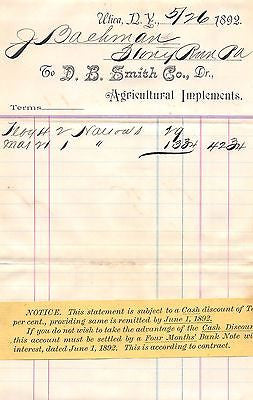 Utica, N. Y., 5/26 1892.
J Bachman
Stoney Run Pa
To D. B. Smith Co., Dr.,
Agricultural Implements.
Terms
4 2 Harrows 29
Mar 21 1 " 13 34 42 34
NOTICE. This statement is subject to a Cash discount of Te
per cent., providing same is remitted by June 1, 1892.
If you do not wish to take the advantage of the Cash Discoun
this account must be settled by a Four Months' Bank Note wi
interest, dated June 1, 1892. This is according to contract.